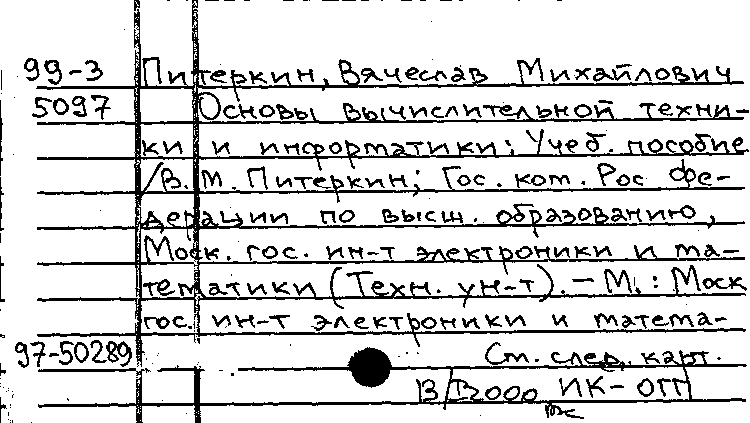 99-3 Питеркин, Вячеслав Михайлович
5097 Основы вычислительной техни-
ки и информатики: Учеб. пособие
/В. М. Питеркин; Гос. ком. Рос Фе-
дерации по высш. образованию,
Моск. гос. ин-т электроники и ма-
тематики (Техн. ун-т). — М.: Моск
гос. ин-т электроники и матема-
97-50289 См. след. карт.
ИК-ОГП